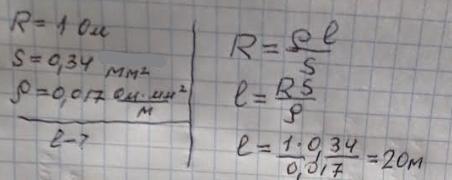 R = 1 Ом
S = 0,34 мм²
ρ = 0,017 Ом·мм²/м
l - ?
R = ρ l/S
l = RS/ρ
l = 1·0,34/0,017 = 20м